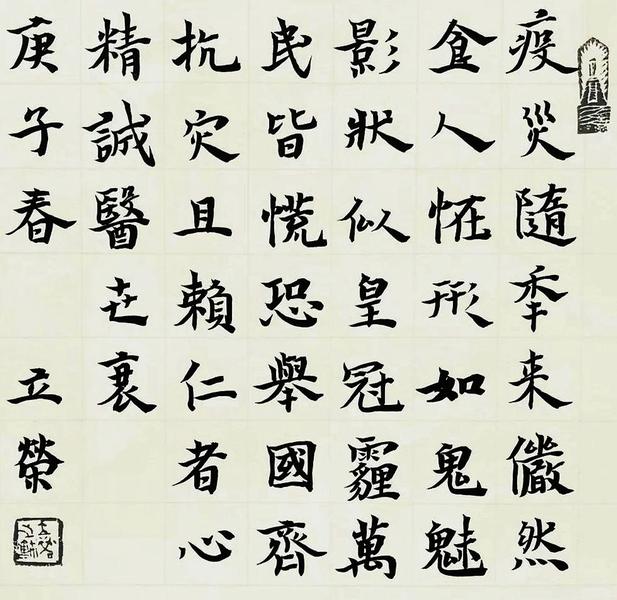 疫災隨秊来儼然
食人恠形如鬼魅
影狀似皇冠霾萬
民皆慌恐舉國齊
抗灾且賴仁者心
精誠醫卋衷
庚子春 立榮